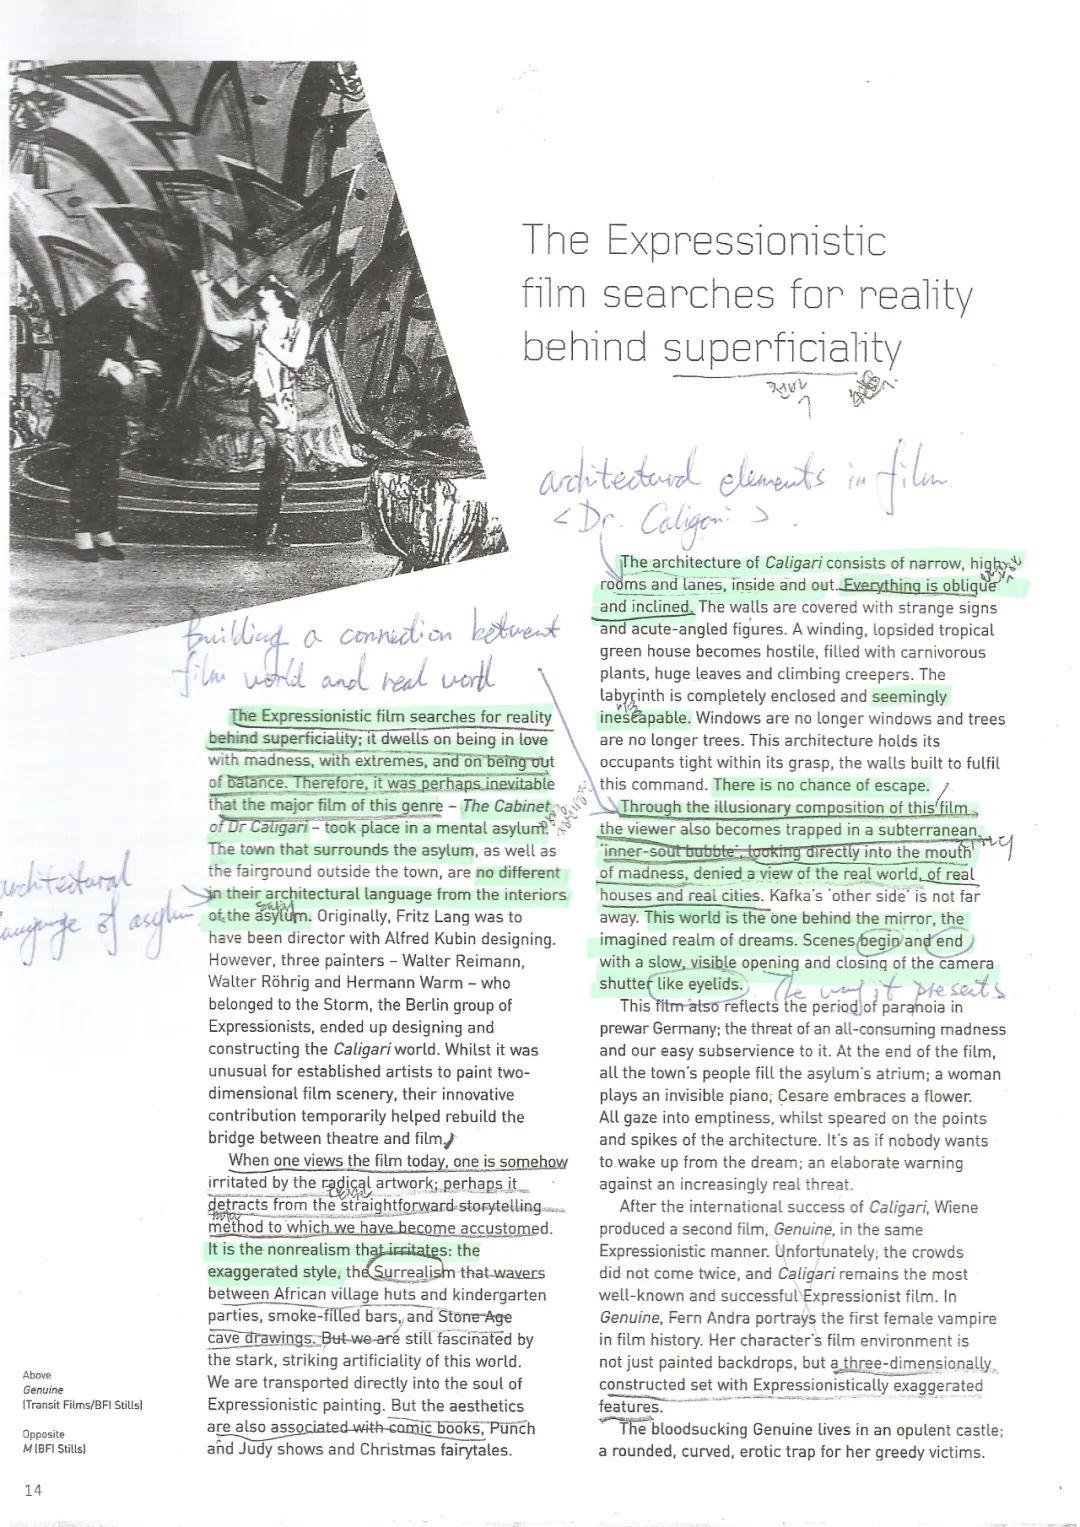 The Expressionistic
film searches for reality
behind superficiality
architectural elements in film
< Dr. Caligari >.
Building a connection between
film world and real world
The Expressionistic film searches for reality
behind superficiality; it dwells on being in love
with madness, with extremes, and on being out
of balance. Therefore, it was perhaps inevitable
that the major film of this genre – The Cabinet
of Dr Caligari – took place in a mental asylum.
The town that surrounds the asylum, as well as
the fairground outside the town, are no different
in their architectural language from the interiors
of the asylum. Originally, Fritz Lang was to
have been director with Alfred Kubin designing.
However, three painters – Walter Reimann,
Walter Röhrig and Hermann Warm – who
belonged to the Storm, the Berlin group of
Expressionists, ended up designing and
constructing the Caligari world. Whilst it was
unusual for established artists to paint two-
dimensional film scenery, their innovative
contribution temporarily helped rebuild the
bridge between theatre and film.
When one views the film today, one is somehow
irritated by the radical artwork; perhaps it
detracts from the straightforward storytelling
method to which we have become accustomed.
It is the nonrealism that irritates: the
exaggerated style, the Surrealism that wavers
between African village huts and kindergarten
parties, smoke-filled bars, and Stone Age
cave drawings. But we are still fascinated by
the stark, striking artificiality of this world.
We are transported directly into the soul of
Expressionistic painting. But the aesthetics
are also associated with comic books, Punch
and Judy shows and Christmas fairytales.
architectural
language of asylum
The architecture of Caligari consists of narrow, high
rooms and lanes, inside and out. Everything is oblique
and inclined. The walls are covered with strange signs
and acute-angled figures. A winding, lopsided tropical
green house becomes hostile, filled with carnivorous
plants, huge leaves and climbing creepers. The
labyrinth is completely enclosed and seemingly
inescapable. Windows are no longer windows and trees
are no longer trees. This architecture holds its
occupants tight within its grasp, the walls built to fulfil
this command. There is no chance of escape.
Through the illusionary composition of this film,
the viewer also becomes trapped in a subterranean
'inner-soul bubble', looking directly into the mouth
of madness, denied a view of the real world, of real
houses and real cities. Kafka's 'other side' is not far
away. This world is the one behind the mirror, the
imagined realm of dreams. Scenes begin and end
with a slow, visible opening and closing of the camera
shutter like eyelids. The way it presents
This film also reflects the period of paranoia in
prewar Germany; the threat of an all-consuming madness
and our easy subservience to it. At the end of the film,
all the town's people fill the asylum's atrium; a woman
plays an invisible piano; Cesare embraces a flower.
All gaze into emptiness, whilst speared on the points
and spikes of the architecture. It's as if nobody wants
to wake up from the dream; an elaborate warning
against an increasingly real threat.
After the international success of Caligari, Wiene
produced a second film, Genuine, in the same
Expressionistic manner. Unfortunately, the crowds
did not come twice, and Caligari remains the most
well-known and successful Expressionist film. In
Genuine, Fern Andra portrays the first female vampire
in film history. Her character's film environment is
not just painted backdrops, but a three-dimensionally
constructed set with Expressionistically exaggerated
features.
The bloodsucking Genuine lives in an opulent castle;
a rounded, curved, erotic trap for her greedy victims.
Above
Genuine
(Transit Films/BFI Stills)
Opposite
M (BFI Stills)
14